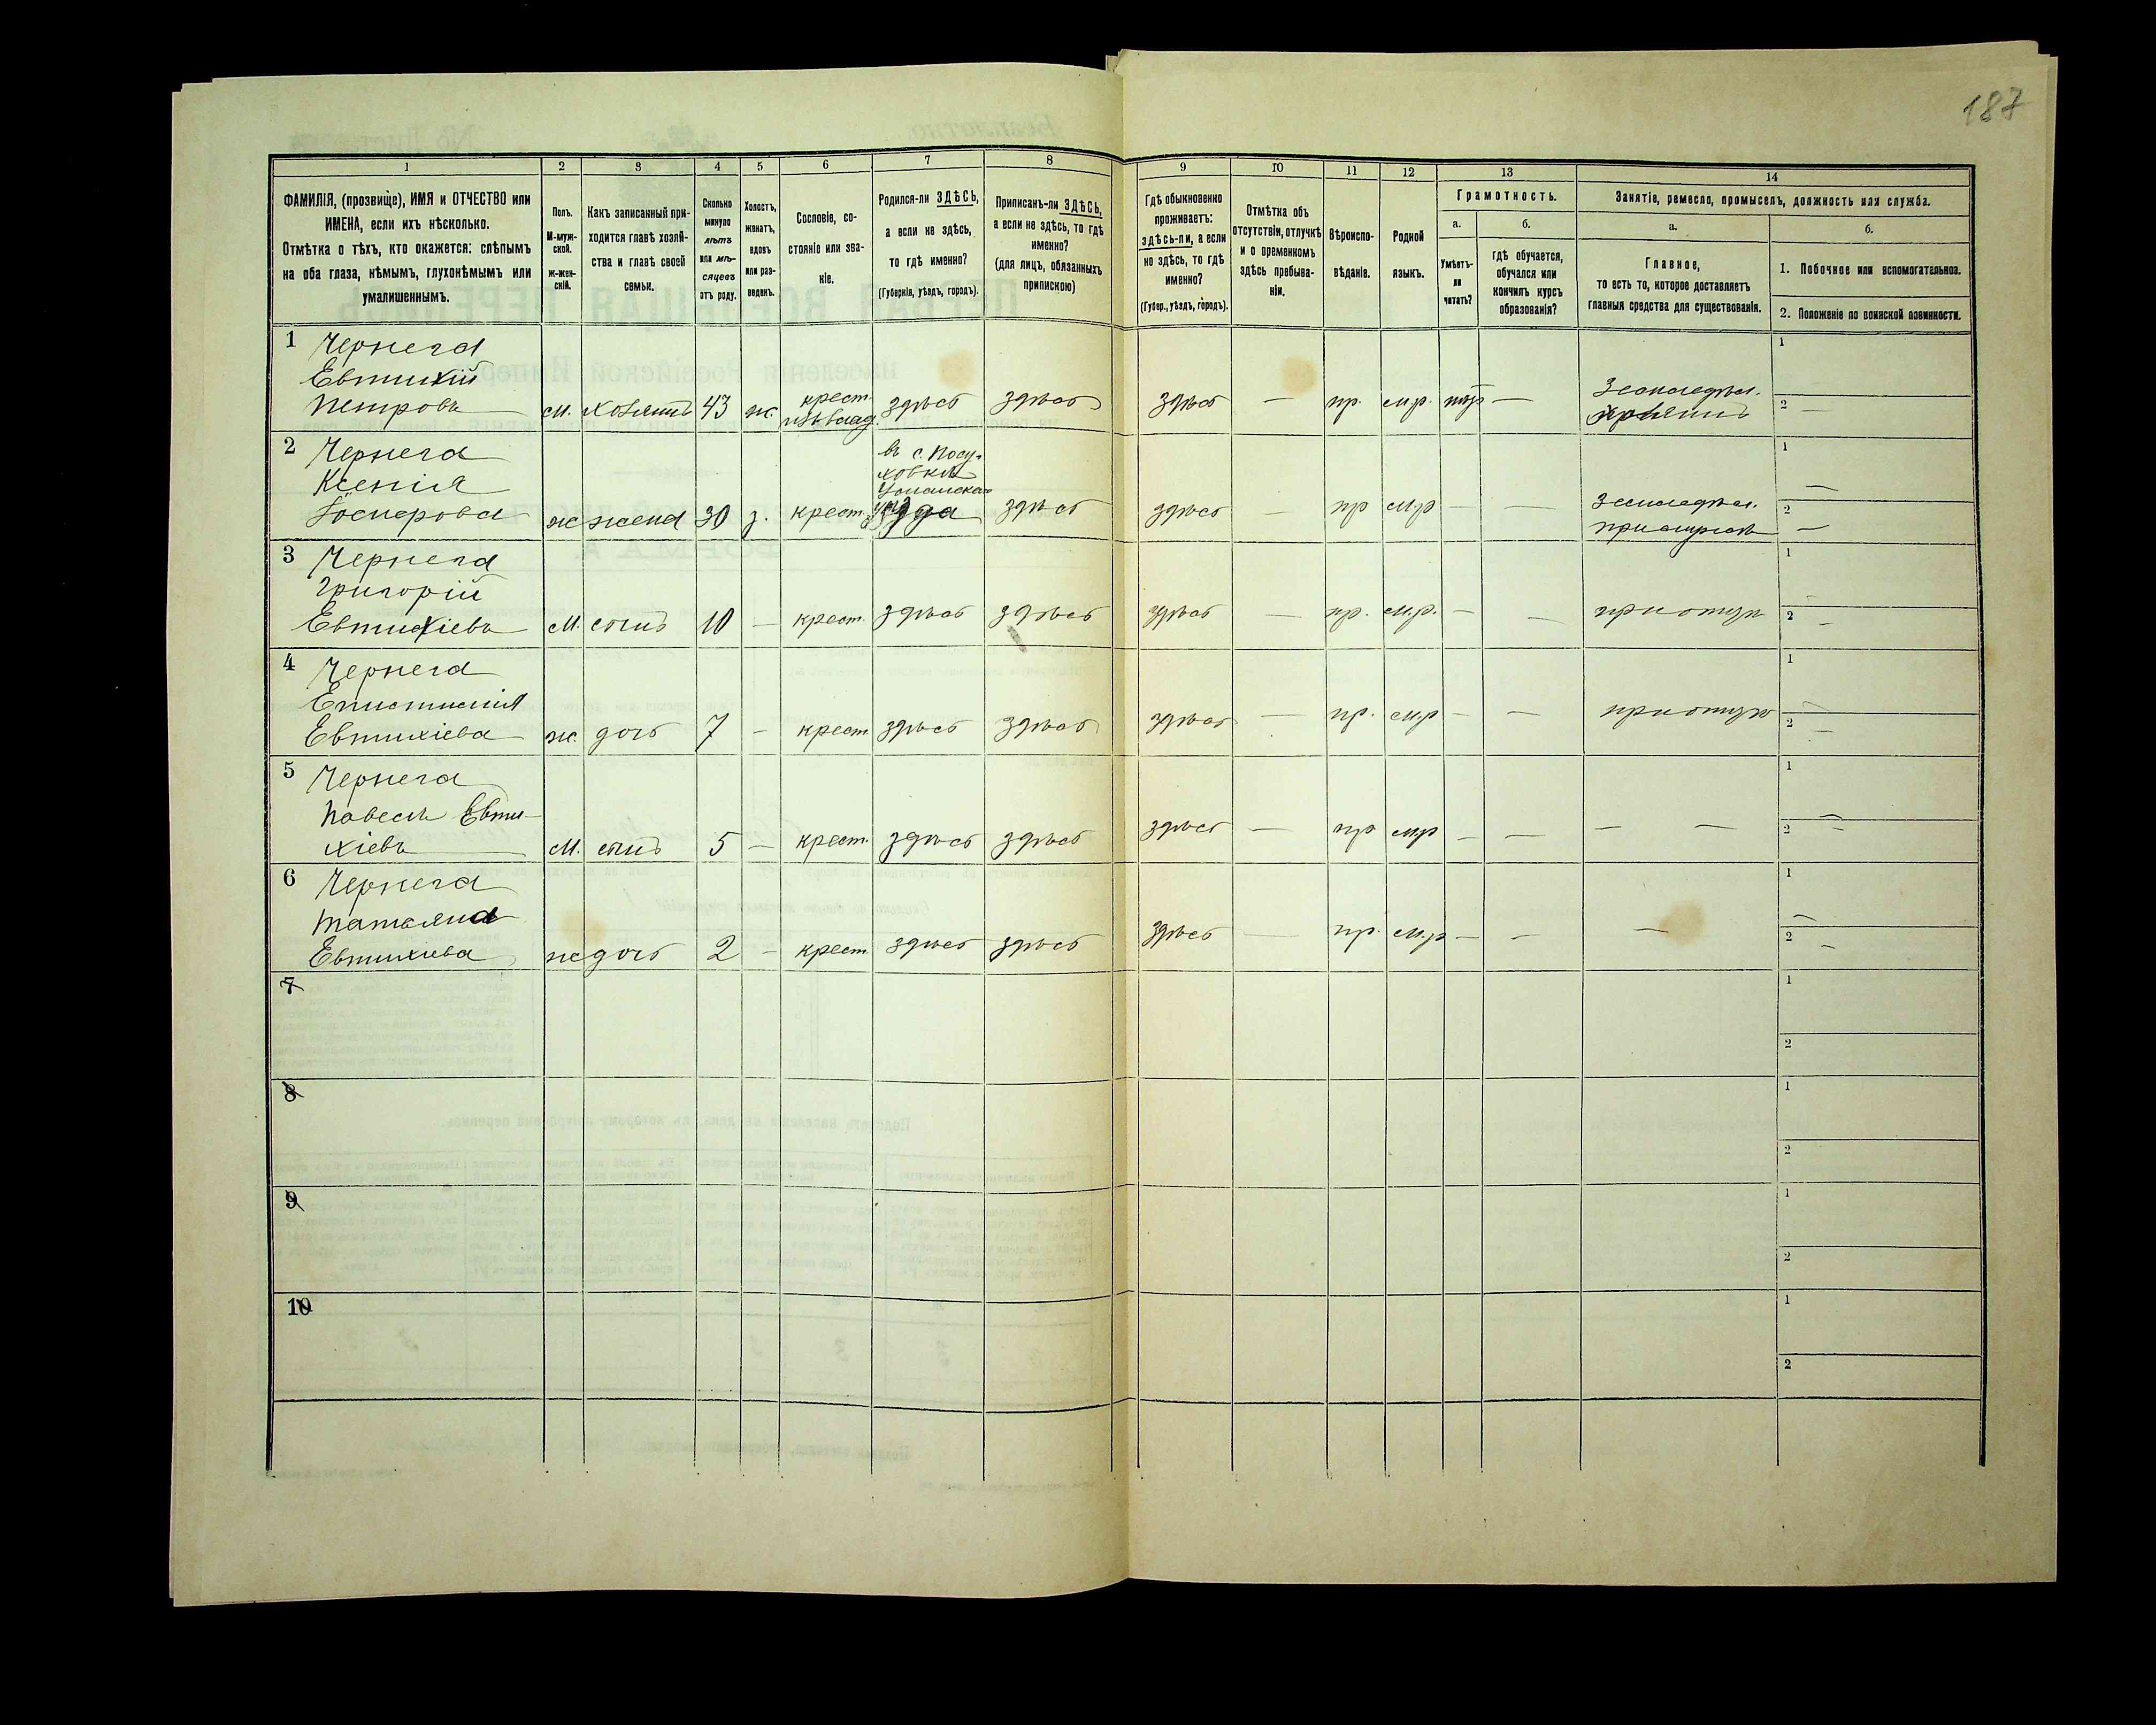 187
1 2 3 4 5 6 7 8 9 10 11 12 13 14
ФАМИЛІЯ, (прозвище), ИМЯ и ОТЧЕСТВО или
ИМЕНА, если ихъ нѣсколько.
Отмѣтка о тѣхъ, кто окажется: слѣпымъ
на оба глаза, нѣмымъ, глухонѣмымъ или
умалишеннымъ.
Полъ.
М-муж-
ской.
ж-жен-
скій.
Какъ записанный при-
ходится главѣ хозяй-
ства и главѣ своей
семьи.
Сколько
минуло
лѣтъ
или мѣ-
сяцевъ
отъ роду.
Холостъ,
женатъ,
вдовъ
или раз-
веденъ.
Сословіе, со-
стояніе или зва-
ніе.
Родился-ли ЗДѢСЬ,
а если не здѣсь,
то гдѣ именно?
(Губернія, уѣздъ, городъ).
Приписанъ-ли ЗДѢСЬ,
а если не здѣсь, то гдѣ
именно?
(для лицъ, обязанныхъ
припискою)
Гдѣ обыкновенно
проживаетъ:
здѣсь-ли, а если
не здѣсь, то гдѣ
именно?
(Губер., уѣздъ, городъ).
Отмѣтка объ
отсутствіи, отлучкѣ
и о временномъ
здѣсь пребыва-
ніи.
Вѣроиспо-
вѣданіе.
Родной
языкъ.
Грамотность.
а.
Умѣетъ-
ли
читать?
б.
гдѣ обучается,
обучался или
кончилъ курсъ
образованія?
Занятіе, ремесло, промыселъ, должность или служба.
а.
Главное,
то есть то, которое доставляетъ
главныя средства для существованія.
б.
1. Побочное или вспомогательное.
2. Положеніе по воинской повинности.
1 Чернега
Евтихій
Петровъ м. хозяинъ 43 ж. крест. здѣсь здѣсь здѣсь — пр. м.р. — земледѣл.
хозяинъ
1
2 —
2 Чернега
Ксенія
ж жена 30 з. крест. въ с. Посу-
ховкѣ
Уманскаго
здѣсь здѣсь — пр м.р — — земледѣл.
1 —
2 —
3 Чернега
Григорій
Евтихіевъ м. сынъ 10 — крест. здѣсь здѣсь здѣсь — пр. м.р. — — при отцѣ
1
2 —
4 Чернега
Епистимія
Евтихіева ж. дочь 7 — крест здѣсь здѣсь здѣсь — пр. м.р — — при отцѣ
1
2 —
5 Чернега
Павелъ Евти-
хіевъ м. сынъ 5 — крест. здѣсь здѣсь здѣсь — пр мр — — — —
1
2 —
6 Чернега
Татьяна
Евтихиева ж дочь 2 — крест здѣсь здѣсь здѣсь — пр. м.р — — —
1
2 —
7
1
2
8
1
2
9
1
2
10
1
2